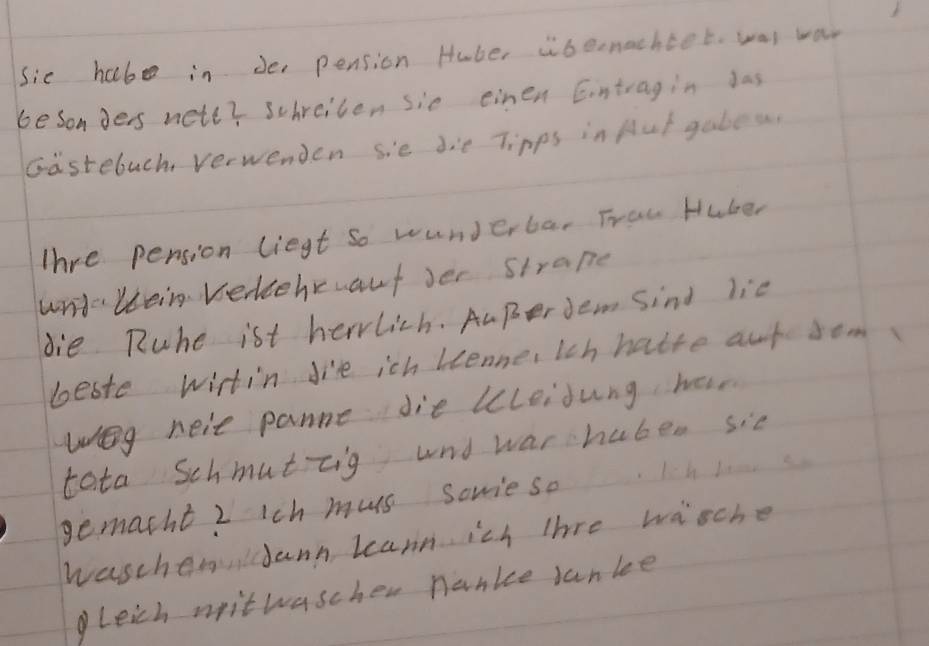 Sie habe in der pension Huber übernachtet. was war
besonders nett? schreiben sie einen Eintrag in das
Gästebuch. verwenden sie die Tipps in Aufgabe
Ihre pension liegt so wunderbar Frau Huber
und kein verkehr auf der Straße
die Ruhe ist herrlich. Außerdem sind die
beste wirtin die ich kenne. Ich hatte auf dem
weg neie panne die kleidung war
tota schmutzig und war haben sie
gemacht? ich muss sowieso
waschen dann kann ich Ihre wäsche
gleich mitwaschen Danke danke